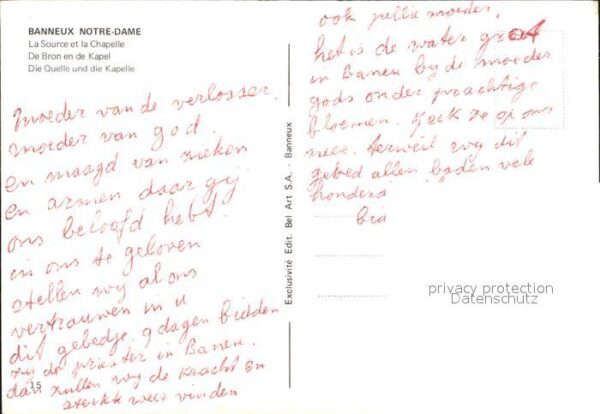 BANNEUX NOTRE-DAME
La Source et la Chapelle
De Bron en de Kapel
Die Quelle und die Kapelle
moeder van de verlosser.
moeder van god.
en maagd van zieken
en armen daar gij
ons beloofd hebt
in ons te geloven
stellen wij al ons
vertrouwen in u
dit gebedje 9 dagen bidden
zij de priester in Banen.
dan zullen wij de kracht en
sterkte weer vinden
15
Exclusivité Edit. Bel Art S.A. - Banneux
ook jullie moeder,
het is de water grot
in Banen bij de moeder
gods onder prachtige
bloemen. Keek ze op ons
neer. terweil wij dit
gebed allen baden vele
honderd
bid
privacy protection
Datenschutz